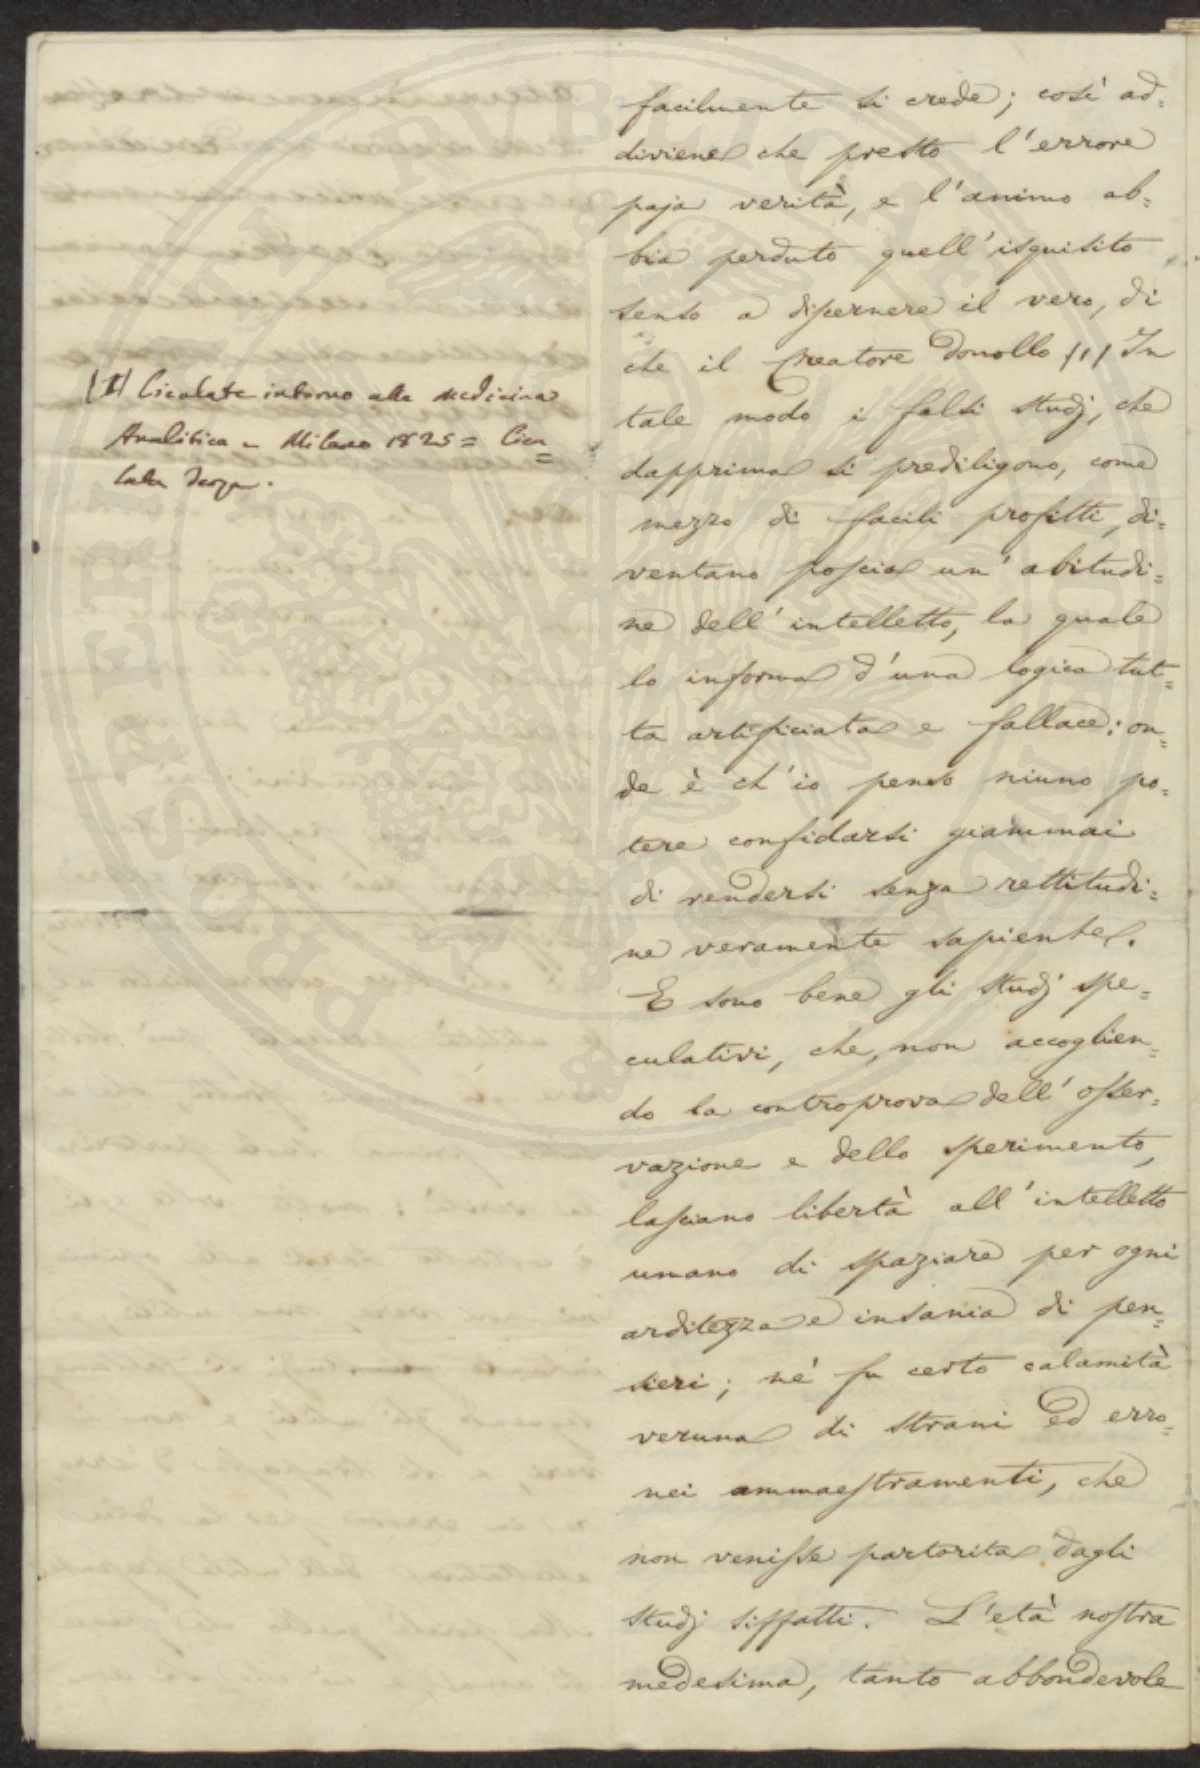 facilmente si crede; così ad=
diviene che presto l'errore
paja verità, e l'animo ab=
bia perduto quell'isquisito
senso a discernere il vero, di
che il Creatore donollo (1) In
tale modo i falsi studj, che
dapprima si prediligono, come
mezzo di facili profitti, di=
ventano poscia un'abitudi=
ne dell'intelletto, la quale
lo informa d'una logica tut=
ta artificiata e fallace; on=
de è ch'io penso niuno po=
tere confidarsi giammai
di rendersi senza rettitudi=
ne veramente sapiente.
E sono bene gli studj spe=
culativi, che, non accoglien=
do la controprova dell'osser=
vazione e dello sperimento,
lasciano libertà all'intelletto
umano di spaziare per ogni
arditezza e insania di pen=
sieri; né fu certo calamità
veruna di strani ed erro=
nei ammaestramenti, che
non venisse partorita dagli
studj siffatti. L'età nostra
medesima, tanto abbondevole
(1) Cicalate intorno alla medicina
Analitica – Milano 1825 = Cica=
lata
PROSPERI PUBLICAE